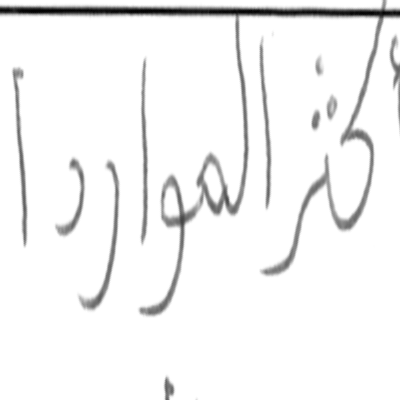 أكثر الموارد ا